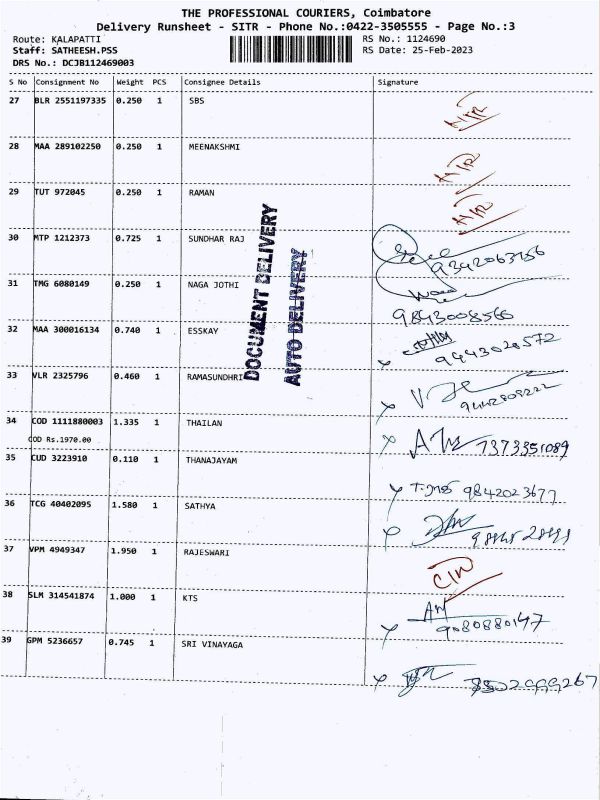 THE PROFESSIONAL COURIERS, Coimbatore
Delivery Runsheet - SITR - Phone No.:0422-3505555 - Page No.:3
Route: KALAPATTI RS No.: 1124690
Staff: SATHEESH.PSS RS Date: 25-Feb-2023
DRS No.: DCJB112469003
S No Consignment No Weight PCS Consignee Details Signature
27 BLR 2551197335 0.250 1 SBS
28 MAA 289102250 0.250 1 MEENAKSHMI
29 TUT 972045 0.250 1 RAMAN
30 MTP 1212373 0.725 1 SUNDHAR RAJ 9342063156
31 TMG 6080149 0.250 1 NAGA JOTHI 9843008566
32 MAA 300016134 0.740 1 ESSKAY 9443020572
33 VLR 2325796 0.460 1 RAMASUNDHRI
34 COD 1111880003 1.335 1 THAILAN 7373351089
COD Rs.1970.00
35 CUD 3223910 0.110 1 THANAJAYAM 9842023677
36 TCG 40402095 1.580 1 SATHYA
37 VPM 4949347 1.950 1 RAJESWARI
38 SLM 314541874 1.000 1 KTS 9080880147
39 GPM 5236657 0.745 1 SRI VINAYAGA
DOCUMENT DELIVERY
AUTO DELIVERY